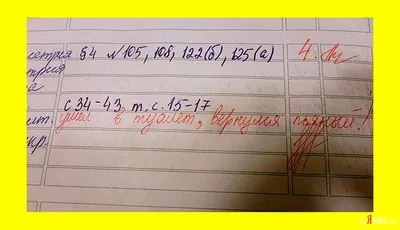 метрия §4 №105, 108, 122(б), 125(а) 4.
трия
а
с 34-43. т. с. 15-17
ушел в туалет, вернулся пьяный!